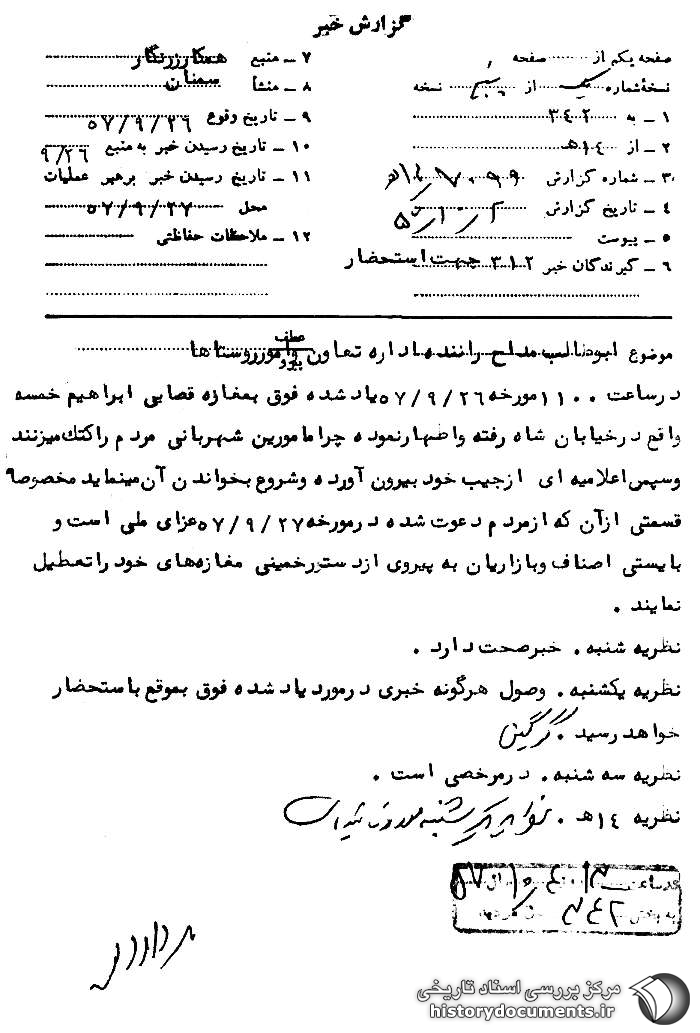 گزارش خبر
صفحه یکم از صفحه
نسخهٔ شماره یک از پنج نسخه
۱ - به ۳۴۲
۲ - از ۱۴هـ
۳ - شماره گزارش
۴ - تاریخ گزارش
۵ - پیوست
۶ - گیرندگان خبر ۳۱۲ جهت استحضار
۷ - منبع همکار زرنگار
۸ - منشأ سمنان
۹ - تاریخ وقوع ۵۷/۹/۲۶
۱۰ - تاریخ رسیدن خبر به منبع ۹/۲۶
۱۱ - تاریخ رسیدن خبر برهبر عملیات
محل ۵۷/۹/۲۷
۱۲ - ملاحظات حفاظتی
عطف
موضوع ابوطالب مداح راننده اداره تعاون وامورروستاها
پیرو
درساعت ۱۱۰۰مورخه ۵۷/۹/۲۶یاد شده فوق بمغازه قصابی ابراهیم خمسه
واقع درخیابان شاه رفته واظهارنموده چرامامورین شهربانی مردم راکتك میزنند
وسپس اعلامیه ای ازجیب خود بیرون آورده وشروع بخواندن آن مینماید مخصوصا
قسمتی ازآن که ازمردم دعوت شده درمورخه ۵۷/۹/۲۷عزای ملی است و
بایستی اصناف وبازاریان به پیروی ازدستورخمینی مغازه‌های خود راتعطیل
نمایند .
نظریه شنبه . خبرصحت دارد .
نظریه یکشنبه . وصول هرگونه خبری درمورد یاد شده فوق بموقع باستحضار
خواهد رسید . گرگین
نظریه سه شنبه . درمرخصی است .
نظریه ۱۴هـ . نظریه یکشنبه مورد تائید است
۳۴۲
مرکز بررسی اسناد تاریخی
historydocuments.ir